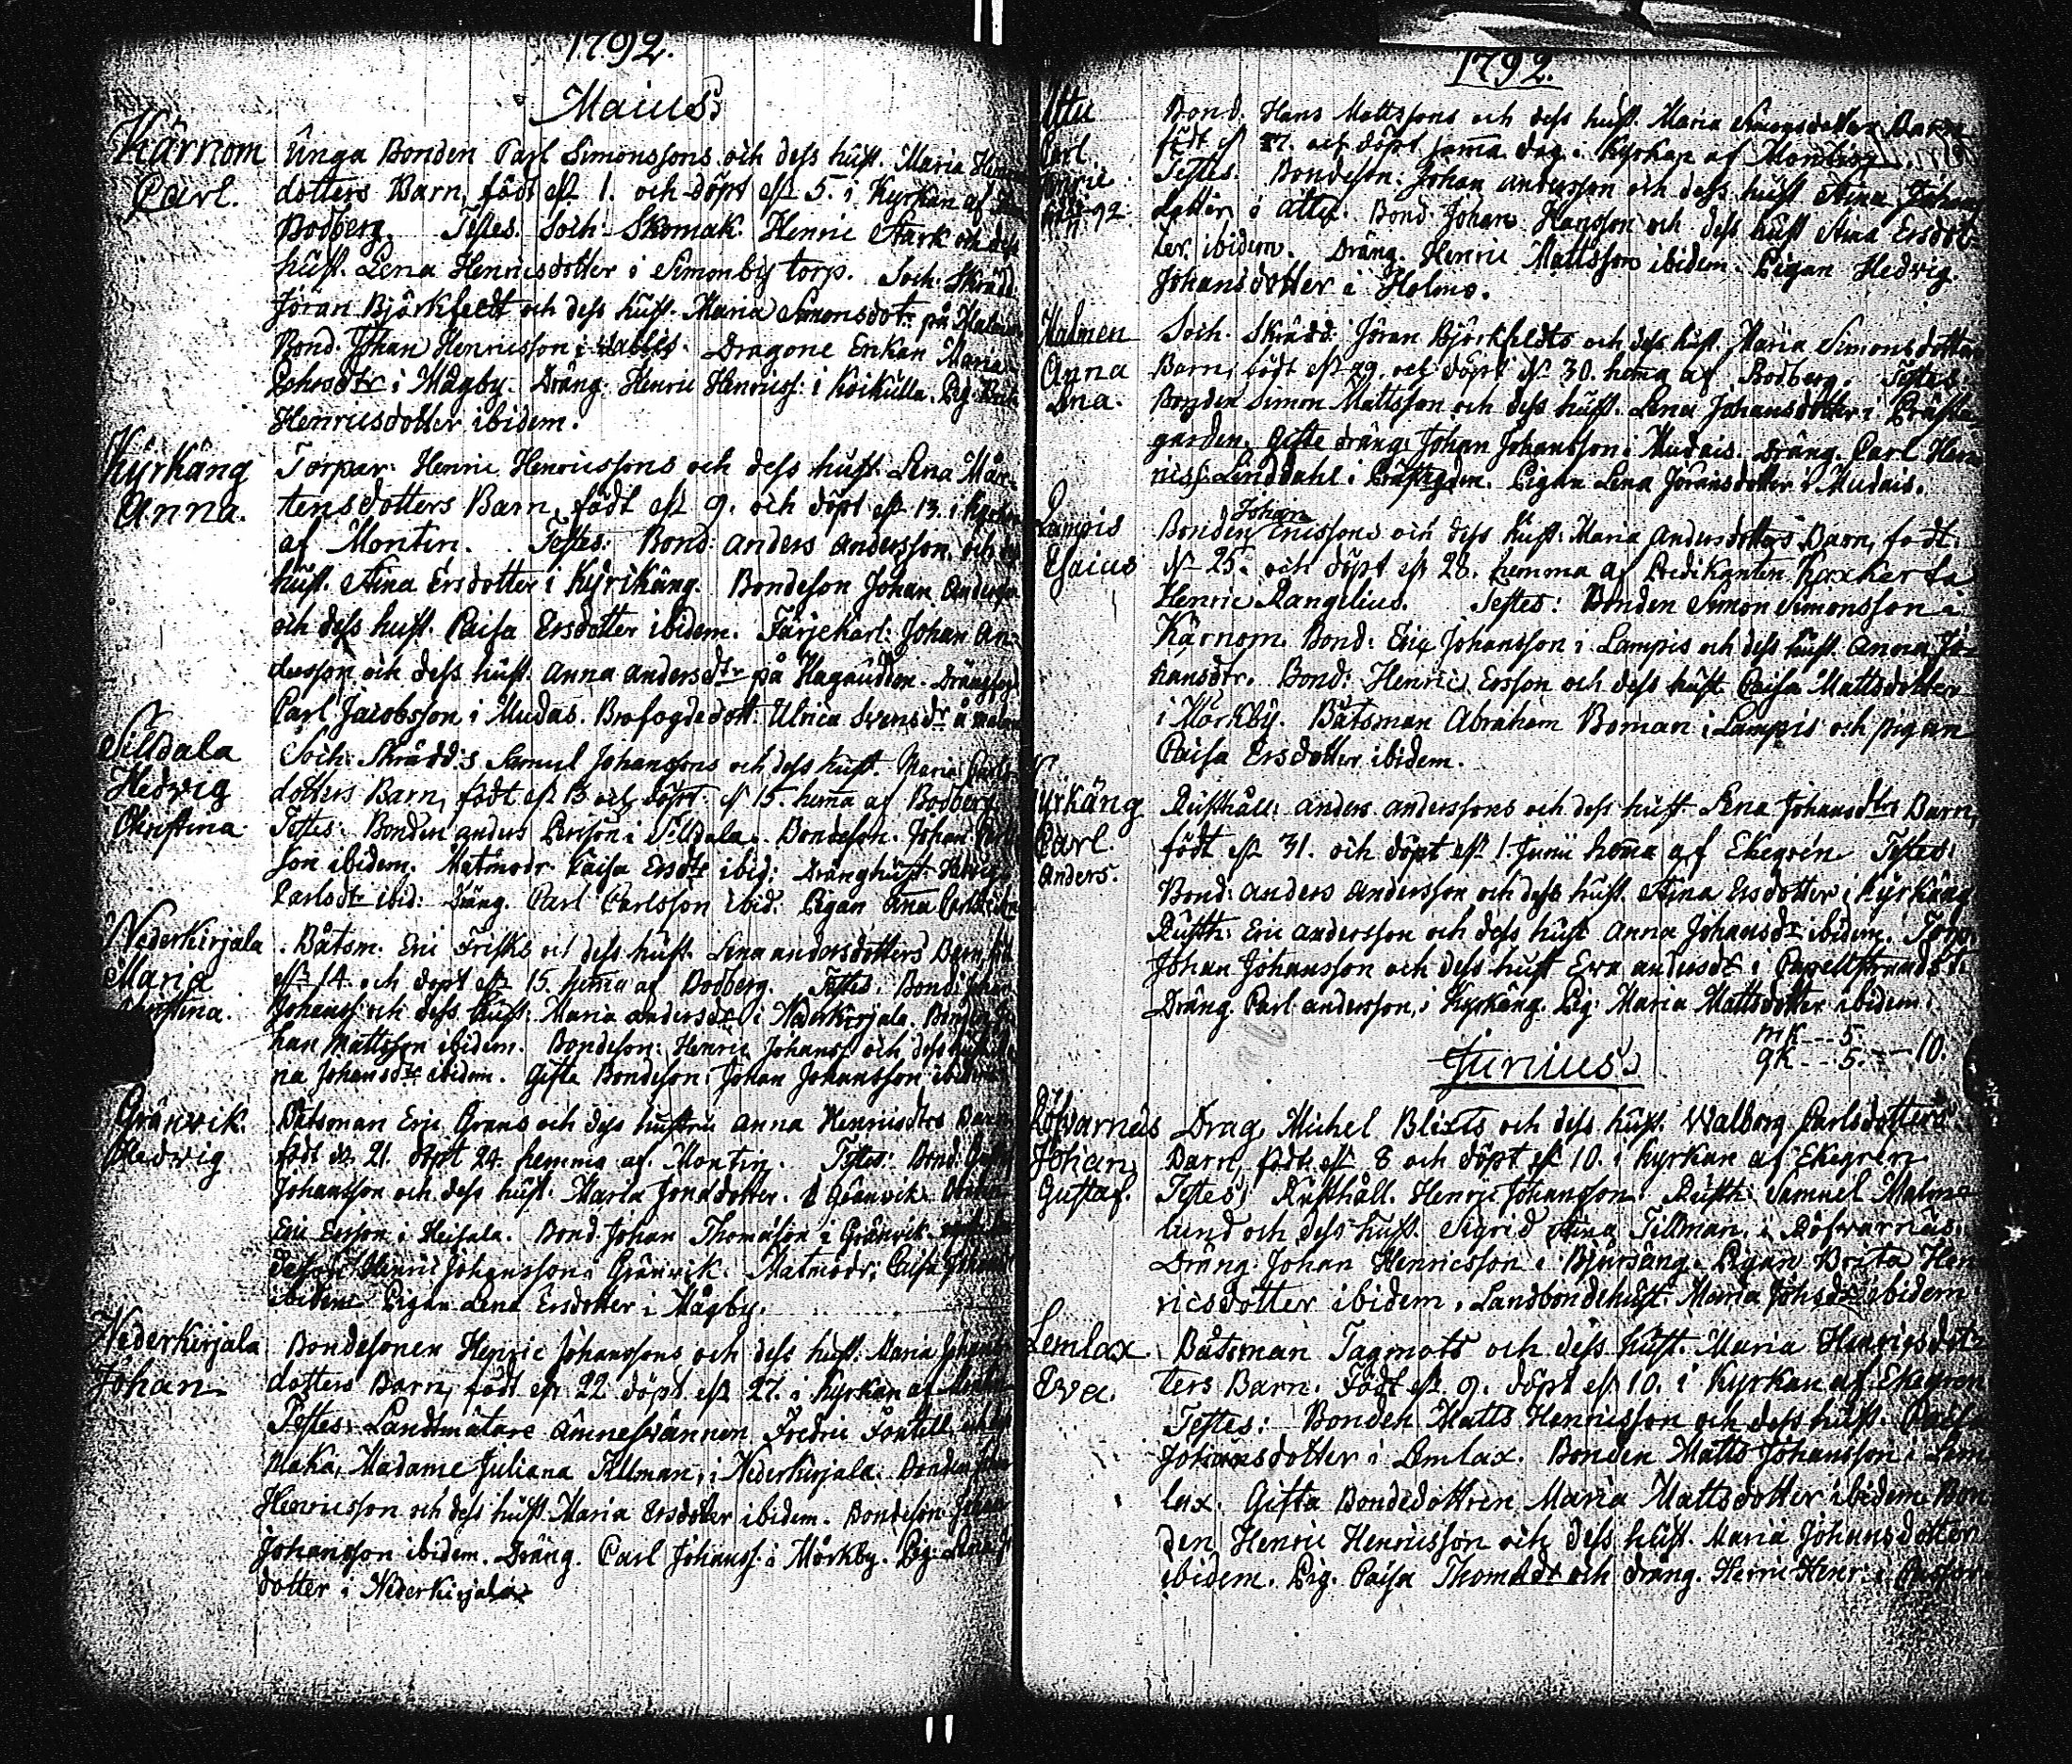 1792.
Maius
Kärnom
Carl.
Unga Bonden Carl Simonssons och dess hust. Maria Henr
dotters Barn, född d. 1. och döpt d. 5. i Kyrkan af
Bodberg. Testes. Soch. Skomak. Henric Stark och dess
hust. Lena Henricsdotter i Simonby torp. Soch. Skrädd.
Jöran Björkfeldt och dess hust. Maria Simonsdotr på Halmen
Bond. Johan Henricsson i Dragone Enkan Maria
Johsdtr i Mågby. Dräng. Henric Henricss. i Koikulla. Pig. Brit
Henricsdotter ibidem.
Kyrkäng
Anna.
Torpar. Henric Henricssons och dess hust. Lena Mår-
tensdotters Barn, född d. 9. och döpt d. 13. i Kyrkan
af Montin. Testes: Bond. Anders Andersson och dess
hust. Stina Ersdotter i Kyrkäng. Bondeson Johan Anderss
och dess hust. Caisa Ersdotter ibidem. Färjekarl. Johan An-
dersson och dess hust. Anna Andersdtr på Hagaudden. Dräng
Carl Jacobsson i Mudas. Brofogdedott. Ulrica Svensdr å
Silldala
Hedvig
Christina
Soch. Skrädd.s Samul Johanssons och dess hust. Maria Carls
dotters Barn, född d. 13 och döpt d. 15. hema af Bodberg
Testes: Bonden Anders Persson i Silldala. Bondeson. Johan
son ibidem. Matmodr. Caisa Ersdtr ibid: Dränghust. Hedvig
Carlsdtr ibid: Dräng. Carl Carlsson ibid: Pigan Ana Carlsd
Nederkirjala
Maria
Christina.
Båtsm. Eric Frisks och dess hust. Lena Andersdotters Barn, föd
d. 14. och döpt d. 15. hema af Bodberg. Testes. Bond. Johan
Johanss. och dess hust. Maria Andersdr i Nederkirjala. Bonden Jo
han Mattsson ibidem. Bondeson. Henric Johanss. och dess hust
na Johansdtr ibidem. Gifta Bondeson Johan Johansson ibidem
Gränvik.
Hedvig
Båtsman Eric Grans och dess hustru Anna Henricsdtrs Barn
född d. 21. döpt 24. hemma af Montin. Testes: Bond.
Johansson och dess hust. Maria Jonasdotter. i Gränvik. Bonden
Eric Ersson i Heisala. Bond. Johan Thomasson i Gränvik.
Henric Johansson i Gränvik. Matmodr. Caisa Johansd
ibidem Pigan Lena Ersdotter i Mågby.
Nederkirjala
Johan
Bondesonen Henric Johanssons och dess hust. Maria Johans
dotters Barn, född d. 22 döpt d. 27. i Kyrkan af Montin
Testes: Landtmätare Ämnesvännen Fredric Fontell och dess
Maka, Madame Juliana Tillman, i Nederkirjala. Bonden Johan
Henricsson och dess hust. Maria Ersdotter ibidem. Bondeson Johan
Johansson ibidem. Dräng. Carl Johanss. i Mörkby. Pig. Lena
dotter i Nederkirjala
1792.
Attu
Carl
Henric
Bond. Hans Mattssons och dess hust. Maria Simonsdotters Barn
född d. 27. och döpt sama dag i Kyrkan af Montin
Testes. Bondeson. Johan Andersson och dess hust Stina Johans
dotter i Attu. Bond. Johan Hansson och dess hust Stina Ersdot-
ter ibidem. Dräng. Henric Mattsson ibidem. Pigan Hedvig
Johansdotter i Holmo.
Halmen
Anna
Lena.
Soch. Skrädd. Jöran Björkfeldts och dess hust. Maria Simonsdotters
Barn, född d. 29. och döpt d. 30. hema af Bodberg. Testes:
Bonden Simon Mattsson och dess hust. Lena Johansdotter i Prästa-
garden. Gifte dräng. Johan Johansson i Mudais. Dräng. Carl Hen
ricss. Linddahl i Prästgden. Pigan Lena Jöransdotter i Mudais.
Lampis
Esaias
Bonden Johan Ericssons och dess hust. Maria Andersdotters Barn, född
d. 25. och döpt d. 28. hemma af Predikanten Korkerta
Henric Rangelius. Testes: Bonden Simon Simonsson i
Kärnom. Bond: Eric Johansson i Lampis och dess hust. Anna Jo-
hansdtr. Bond: Henric Ersson och dess hust Caisa Mattsdotter
i Mörkby. Båtsman Abraham Boman i Lampis och pigan
Caisa Ersdotter ibidem.
Kyrkäng
Carl
Anders.
Rusthåll: Anders Anderssons och dess hust. Lena Johansdtrs Barn,
född d. 31. och döpt d. 1. Junii hema af Ekegrén Testes:
Bond: Anders Andersson och dess hust. Stina Ersdotter i Kyrkäng
Rusth: Eric Andersson och dess hust Anna Johansdtr ibidem. Torp.
Johan Johansson och dess hust Ewa Andersdtr i Capellstrand
Dräng. Carl Andersson, i Kyrkäng. Pig. Maria Mattsdotter ibidem.
mK--- 5.
qK--- 5. --- 10.
Junius
Röfvarnäs
Johan
Gustaf.
Drag. Michel Blixts och dess hust. Walborg Carlsdotters
Barn, född d. 8 och döpt d. 10. i Kyrkan af Ekegren
Testes: Rusthåll. Henric Johansson. Rusth: Samuel Malm-
lund och dess hust. Sigrid Stina Tillman. i Röfvarnäs.
Dräng. Johan Henricsson i Bjursäng. Pigan Brita Hen
ricsdotter ibidem. Landbondehust. Maria Johsdtr ibidem
Lemlax
Eva.
Båtsman Tagmots och dess hust. Maria Henricsdot-
ters Barn. Född d. 9. döpt d. 10. i Kyrkan af Ekegren
Testes: Bonden Matts Henricsson och dess hust. Caisa
Johansdotter i Lemlax. Bonden Matts Johansson i Lem
lax. Gifta Bondedottren Maria Mattsdotter ibidem Bon
den Henric Henricsson och dess hust. Maria Johansdotter
ibidem. Pig. Caisa Thomasdr och dräng. Henric Henr. i